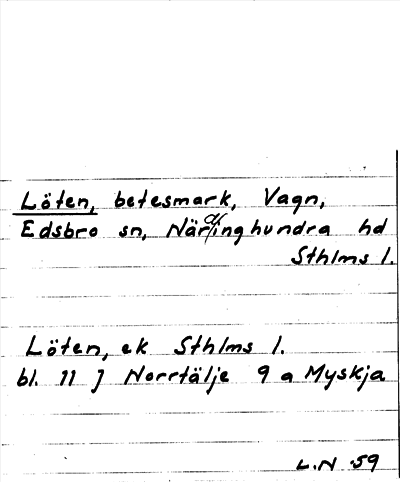 Löten, betesmark, Vagn,
Edsbro sn, Närdinghundra hd
Sthlms l.
Löten, ek Sthlms l.
bl. 11 J Norrtälje 9 a Myskja
L.N. 59